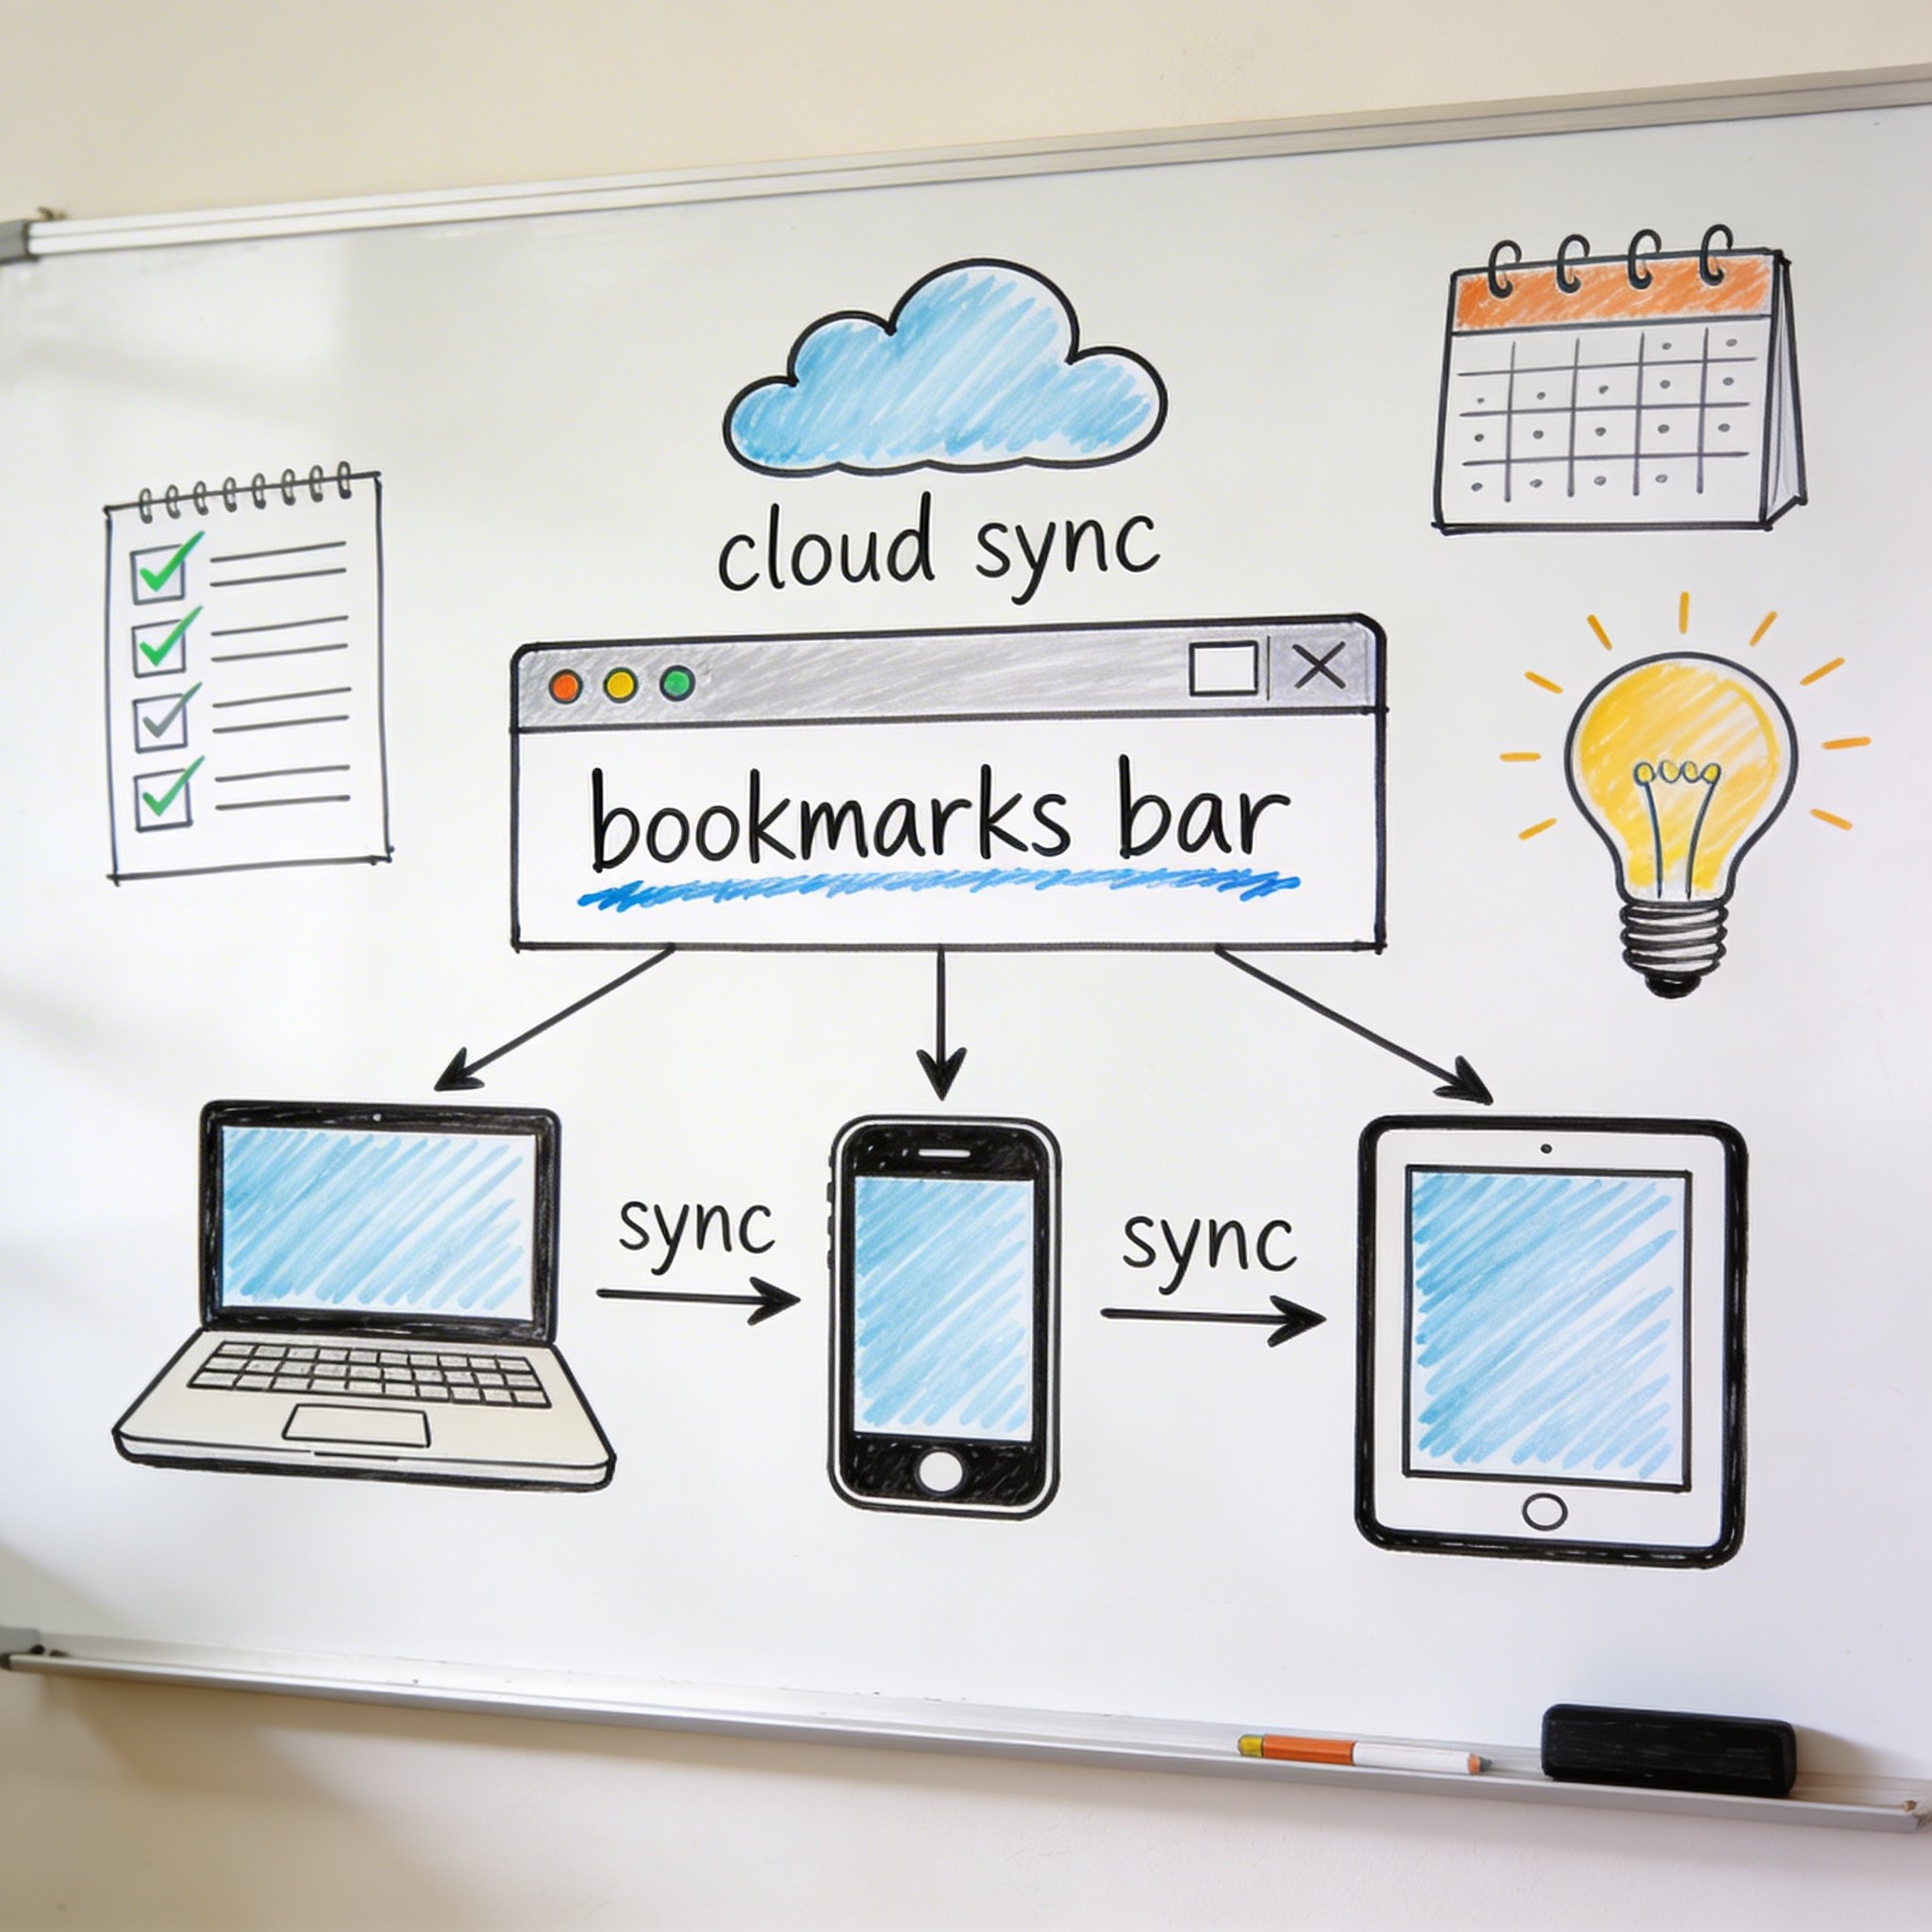 cloud sync
bookmarks bar
sync
sync